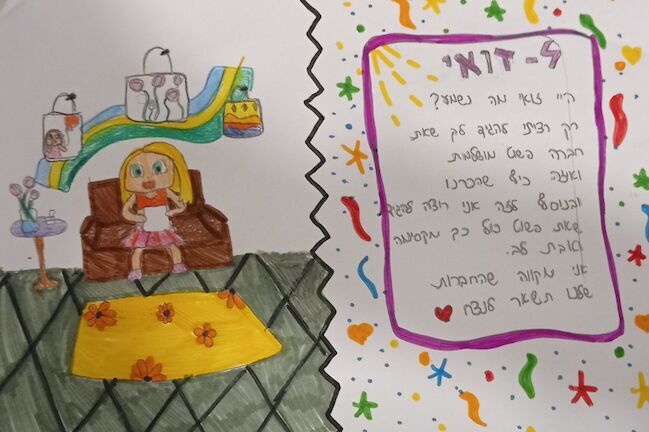 ל-זואי
היי זואי מה נשמע?
רק רציתי להגיד לך שאת
חברה פשוט מושלמת
ואיזה כיף שהכרנו
ובנוסף לזה אני רוצה להגיד
שאת פשוט כול כך מקסימה
וטובת לב.
אני מקווה שהחברות
שלנו תשאר לנצח